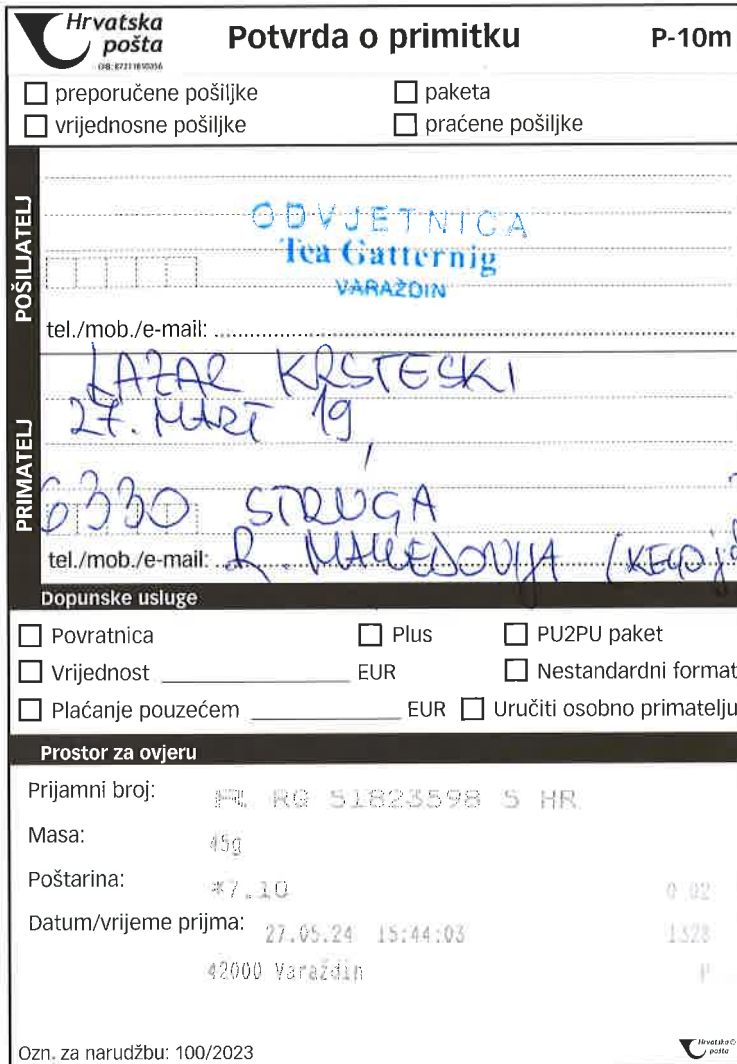 Hrvatska pošta
Potvrda o primitku P-10m
OIB: 87311810356
preporučene pošiljke paketa
vrijednosne pošiljke praćene pošiljke
POŠILJATELJ
ODVJETNICA
Tea Gatternig
VARAŽDIN
tel./mob./e-mail:
PRIMATELJ
LAZAR KRSTESKI
27. MART 19,
6330 STRUGA
tel./mob./e-mail: R. MAKEDONIJA
Dopunske usluge
Povratnica Plus PU2PU paket
Vrijednost EUR Nestandardni format
Plaćanje pouzećem EUR Uručiti osobno primatelju
Prostor za ovjeru
Prijamni broj: RG 51823598 5 HR
Masa: 45g
Poštarina: *7.10 0.02
Datum/vrijeme prijma: 27.05.24 15:44:03 1328
42000 Varaždin P
Ozn. za narudžbu: 100/2023
Hrvatska pošta